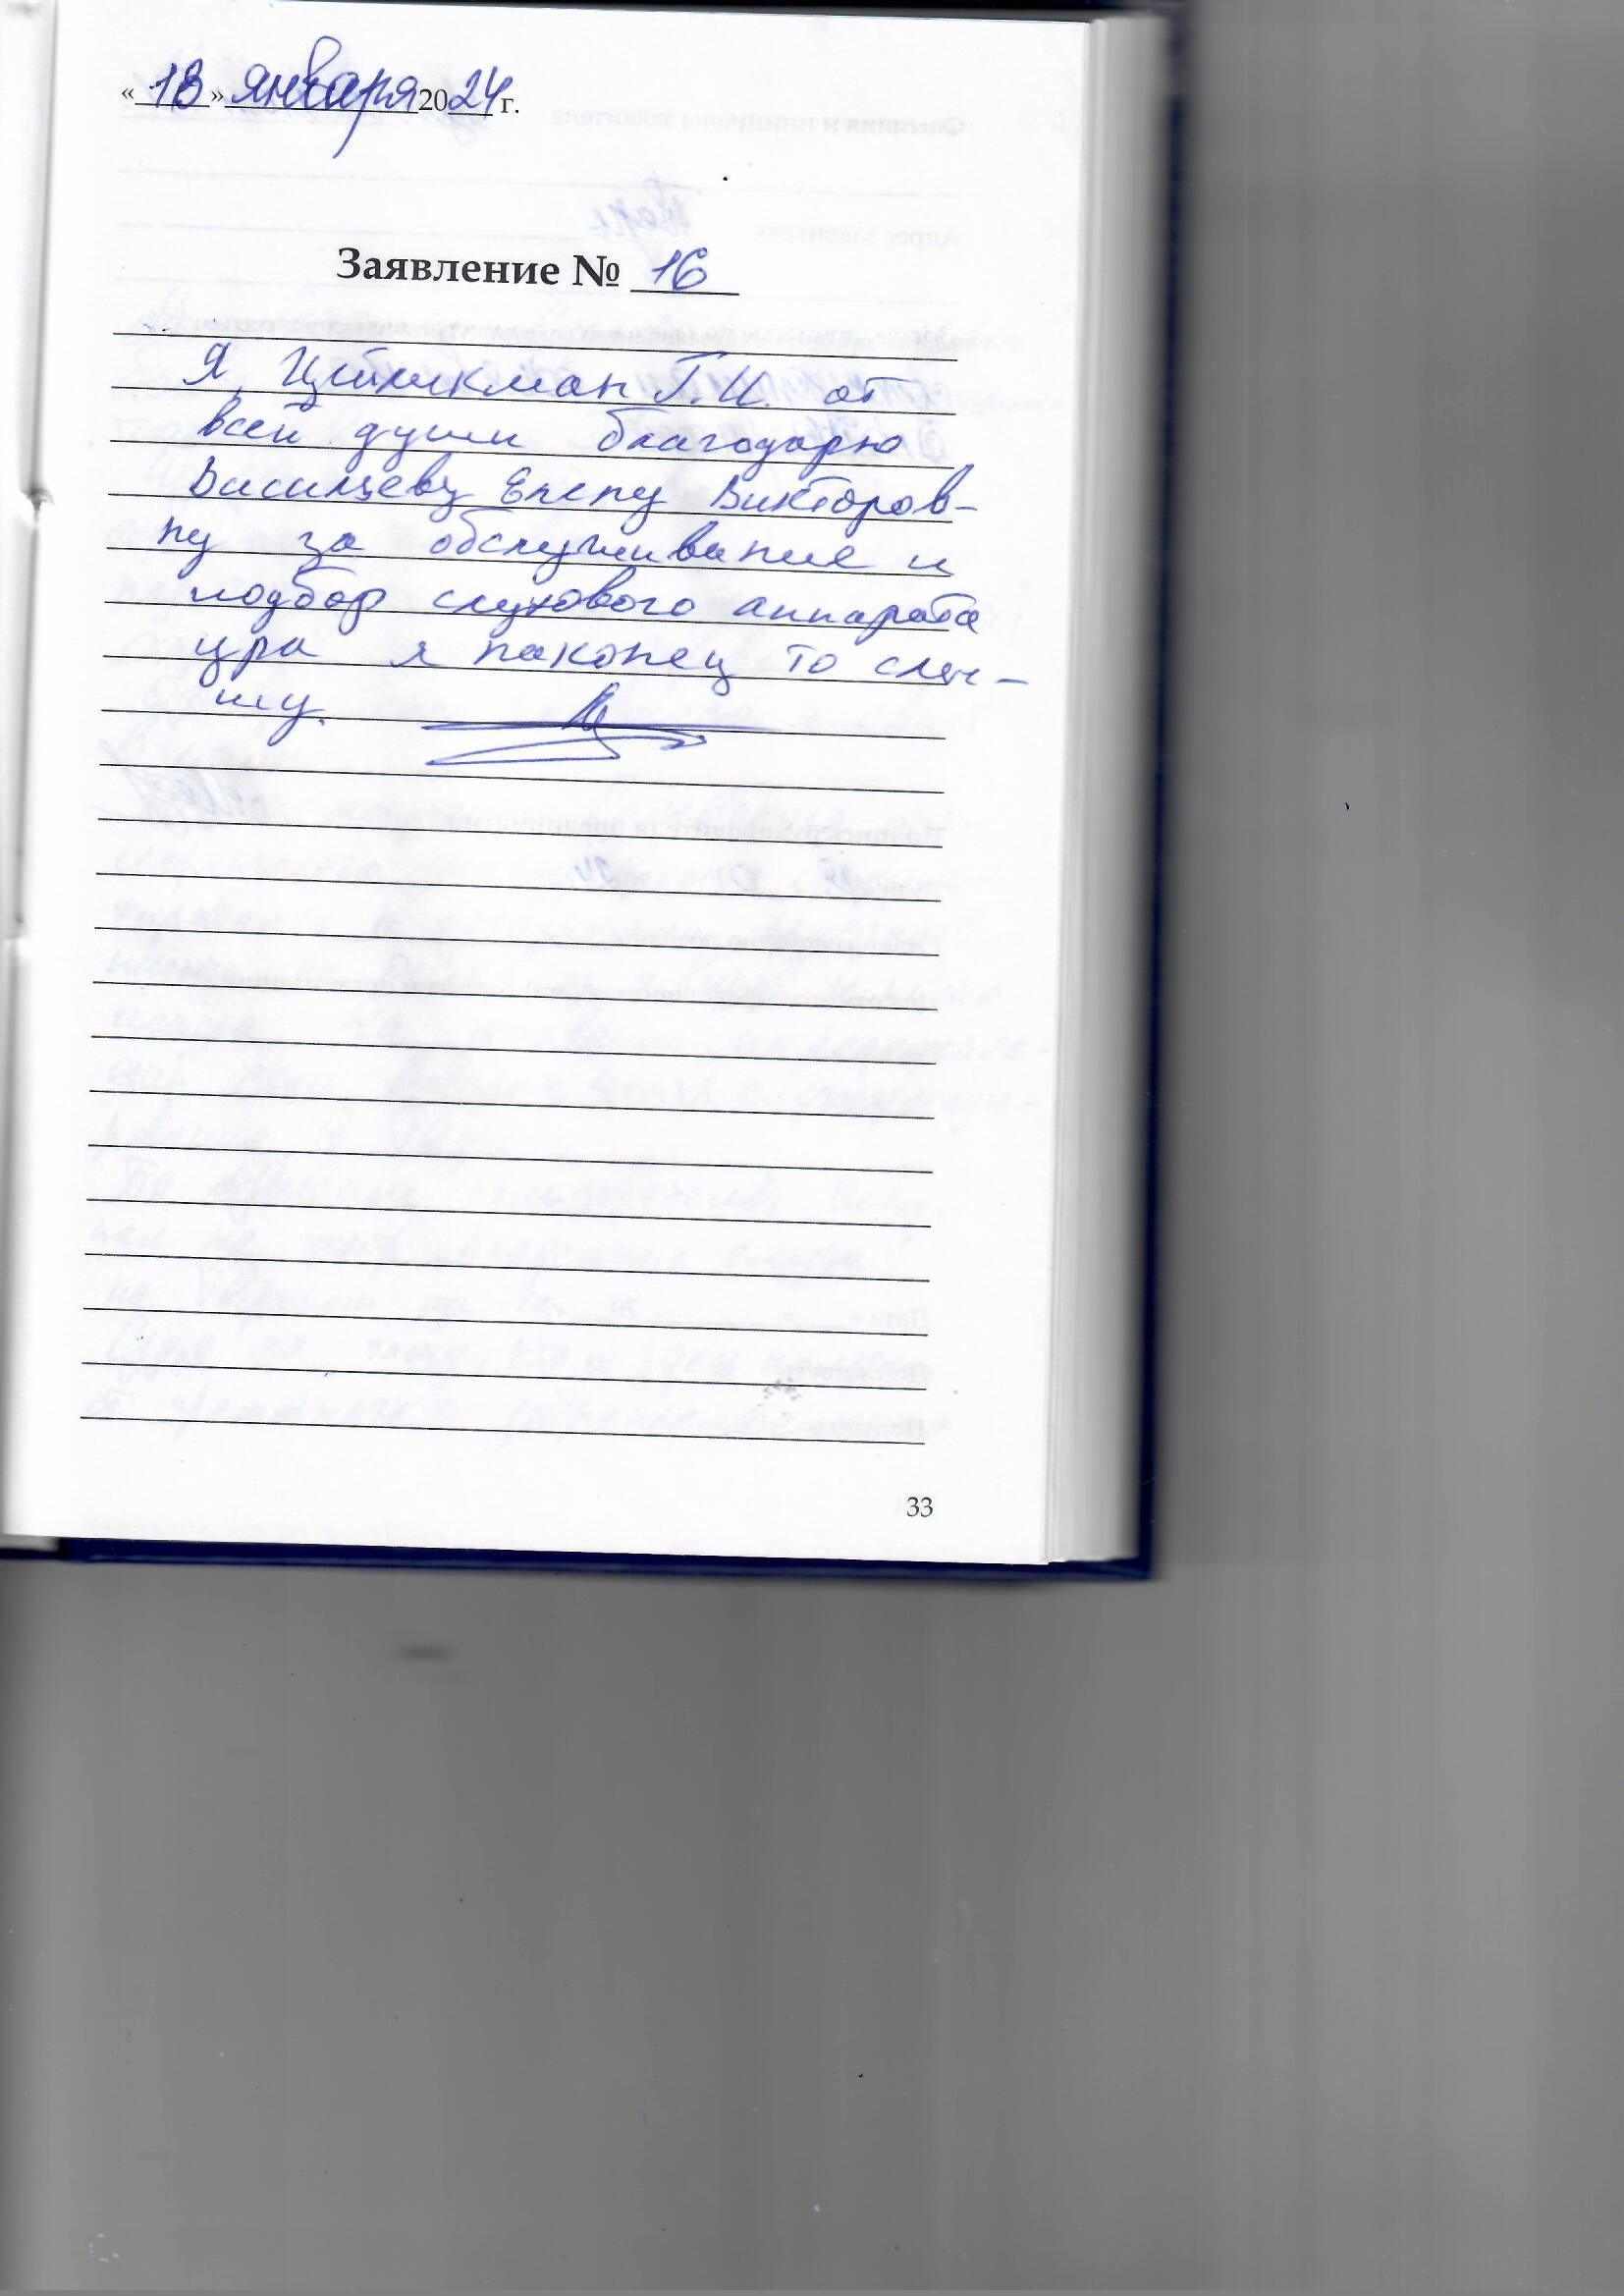 «18» января 2024 г.
Заявление № 16
Я, Г.И. от
всей души благодарю
Елену Виктóров-
ну за обслуживание и
подбор слухового аппарата
ура я наконец то слы-
шу.
33